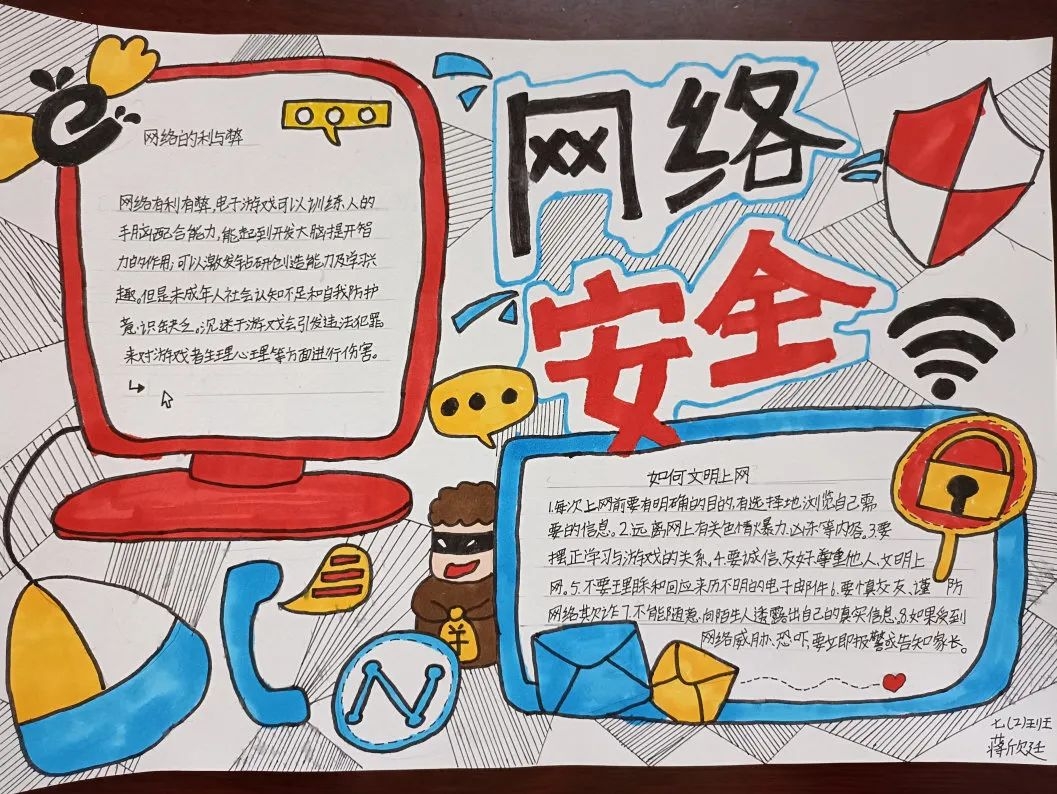 网络安全
e
网络的利与弊
网络有利有弊,电子游戏可以训练人的
手脑配合能力,能起到开发大脑提开智
力的作用;可以激发钻研创造能力及学习兴
趣。但是未成年人社会认知不足和自我防护
意识缺乏。沉迷于游戏会引发违法犯罪
来对游戏者生理心理等方面进行伤害。
如何文明上网
1.每次上网前要有明确的目的,有选择地浏览自己需
要的信息。2.远离网上有关色情暴力、凶杀等内容。3.要
摆正学习与游戏的关系。4.要诚信、友好、尊重他人、文明上
网。5.不要理睬和回应来历不明的电子邮件6.要慎交友、谨防
网络欺诈7.不能随意向陌生人透露出自己的真实信息。8.如果受到
网络威胁、恐吓,要立即报警或告知家长。
¥
N
七(2)班
蒋欣廷